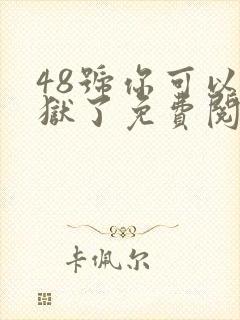 48號你可以
獄了免費閱
卡佩尔